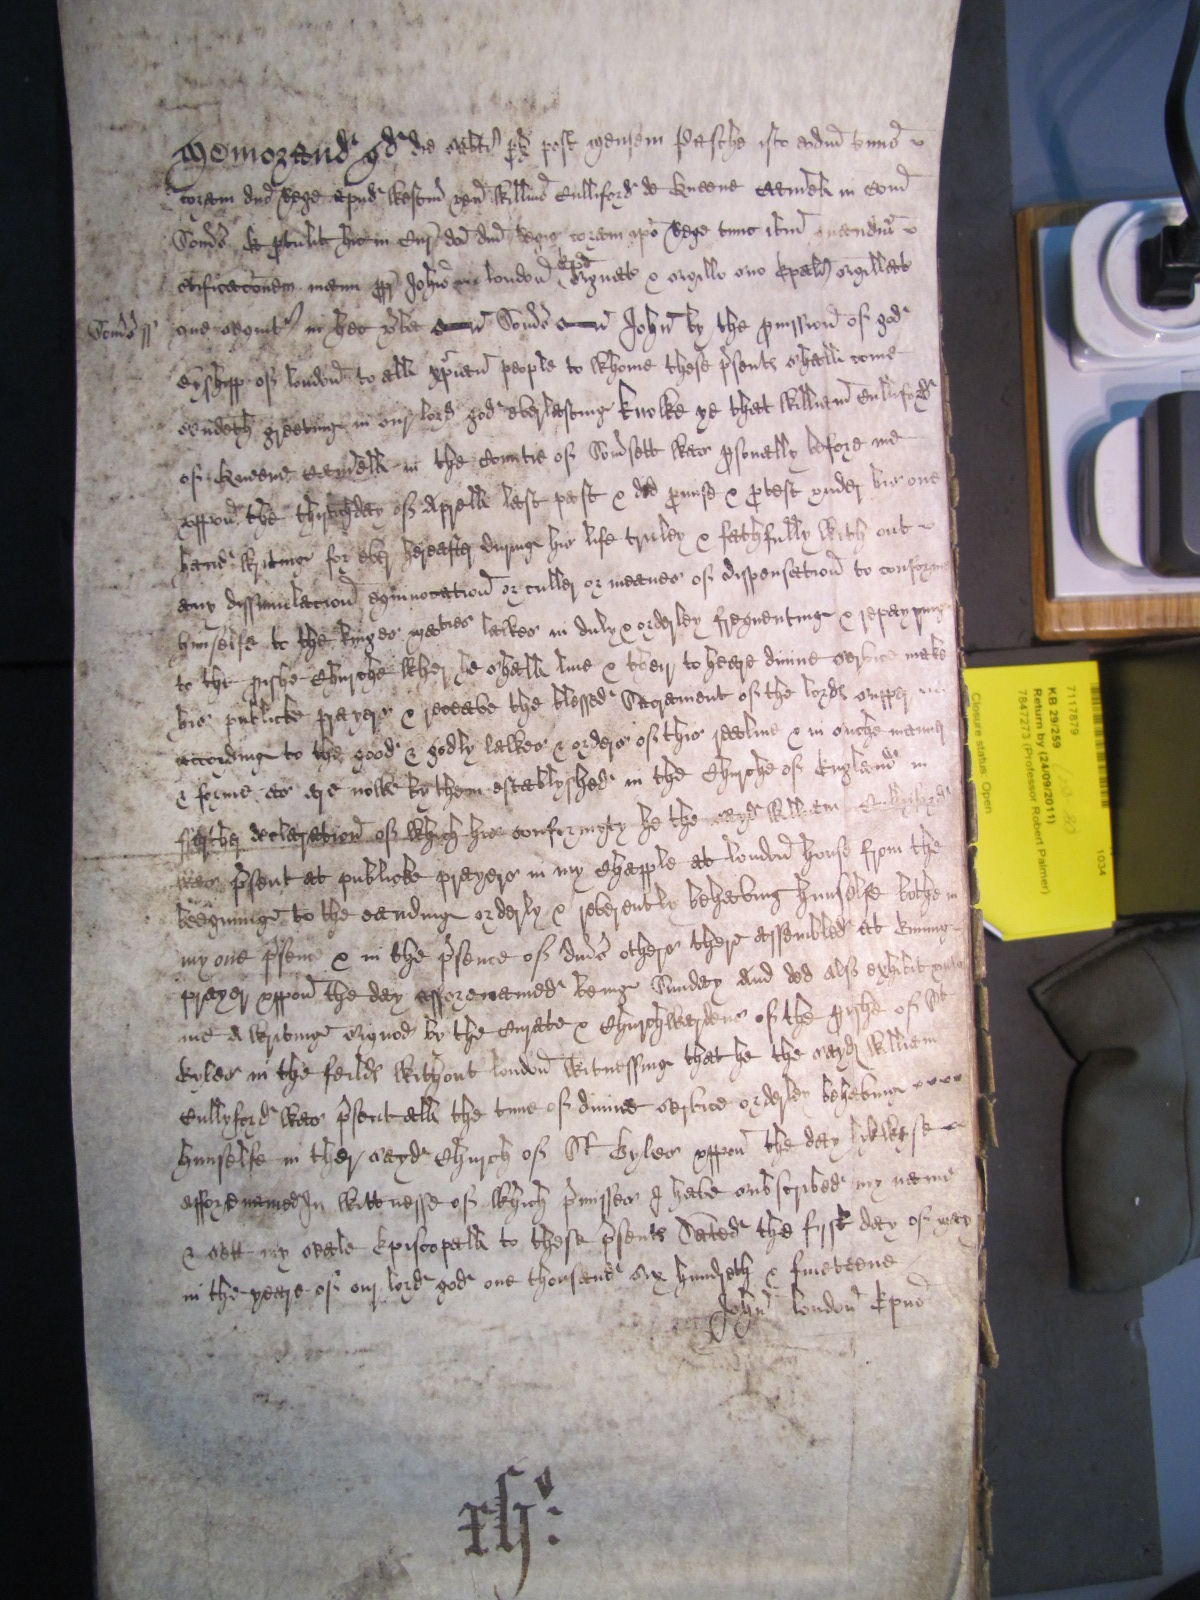 Memorand qd die Sabti px post mensem Pasche isto eodm termio
coram dno Rege apud Westm ven Willms Culliford de Queene Camell in Com
Somes & ptulit hic in Cur dci dni Regis coram ipo Rege tunc ibm quandam
certificaconem manu ppr Johis London Epi signat & sigillo suo Epali sigillat
Somes ss que sequit in hec verba Somes John by the pmission of god
Byshopp of London to all xpian people to whome these psents shall come
sendeth greeting in our lord god everlasting knowe ye that William Culliford
of Queene Camell in the Countie of Somsett was psonally before me
uppon the day of Aprill last past & did pmise & ptest under his one
hand writing for ever hereafter during his life truley & fathfully with out
any dissimulacion equivocation or culler or meanes of dispensation to conforme
himselfe to the kinges maties lawes in duly & orderley frequenting & repayring
to the pishe Churche wher he shall live & ther to heare divine service make
his publicke prayers & receave the blessed Sacrament of the lords supper
according to the good & godly lawes & orders of this realme & in suche manner
& forme as are nowe by them establyshed in the Churche of England in
further declaration of which his conformyty he the sayd William Cullyford
was psent at publicke prayers in my Chapple at London house from the
begininge to the eanding orderly & reverently behaving himselfe bothe in
my one psence & in the psence of divers others there assembled at Evning
prayer uppon the day afforenamed being Sunday and did also exhibit unto
me a writing signed by the Curate & Churchwardens of the pishe of St
Gyles in the feilds without London witnessing that he the sayd William
Cullyford was psent all the time of divine service orderley behaving
himselfe in ther sayd Church of St Gyles uppon the day likewise
afforenamed In wittnesse of which pmisses I have subscribed my name
& sett my seale Episcopall to these psents Dated the first day of may
in the yeare of our lord god one thousand six hundreth & fiveteene
John London Epus
7117879
KB 29/259
Return by (24/09/2011)
7847273 (Professor Robert Palmer)
Closure status: Open
1034